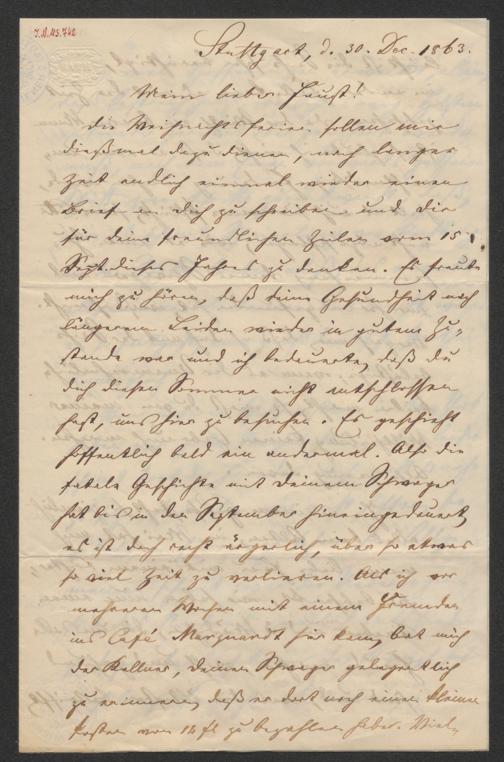 J.N. 115.742
Stuttgart, d. 30. Dec. 1863.
Mein lieber Faust!
Die Weihnachtsferien sollen mir
dießmal dazu dienen, nach langer
Zeit endlich einmal wieder einen
Brief an Dich zu schreiben und Dir
für Deine freundlichen Zeilen vom 15.
Sept. dieses Jahres zu danken. Es freute
mich zu hören, daß Deine Gesundheit nach
längerem Leiden wieder in gutem Zu-
stande war und ich bedauerte, daß Du
Dich diesen Sommer nicht entschlossen
hast, uns hier zu besuchen. Es geschieht
hoffentlich bald ein andermal. Also die
fatale Geschichte mit Deinem Schwager
hat bis in den September hineingedauert,
es ist doch recht ärgerlich, über so etwas
so viel Zeit zu verlieren. Als ich vor
mehreren Wochen mit einem Fremden
ins Café Marquardt hier kam, bat mich
der Kellner, Deinen Schwager gelegentlich
zu erinnern, daß er dort noch einen kleinen
Posten von 14 fl zu bezahlen habe. Viel-